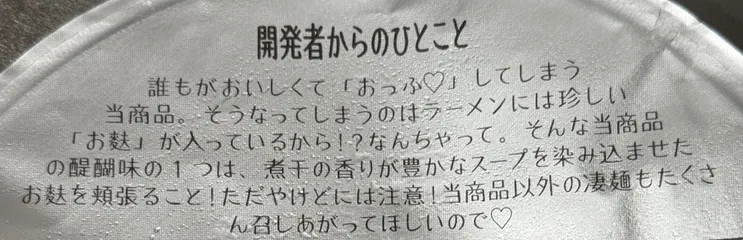 開発者からのひとこと
誰もがおいしくて「おっふ♡」してしまう
当商品。そうなってしまうのはラーメンには珍しい
「お麩」が入っているから!?なんちゃって。そんな当商品
の醍醐味の1つは、煮干の香りが豊かなスープを染み込ませた
お麩を頬張ること!ただやけどには注意!当商品以外の凄麺もたくさ
ん召しあがってほしいので♡